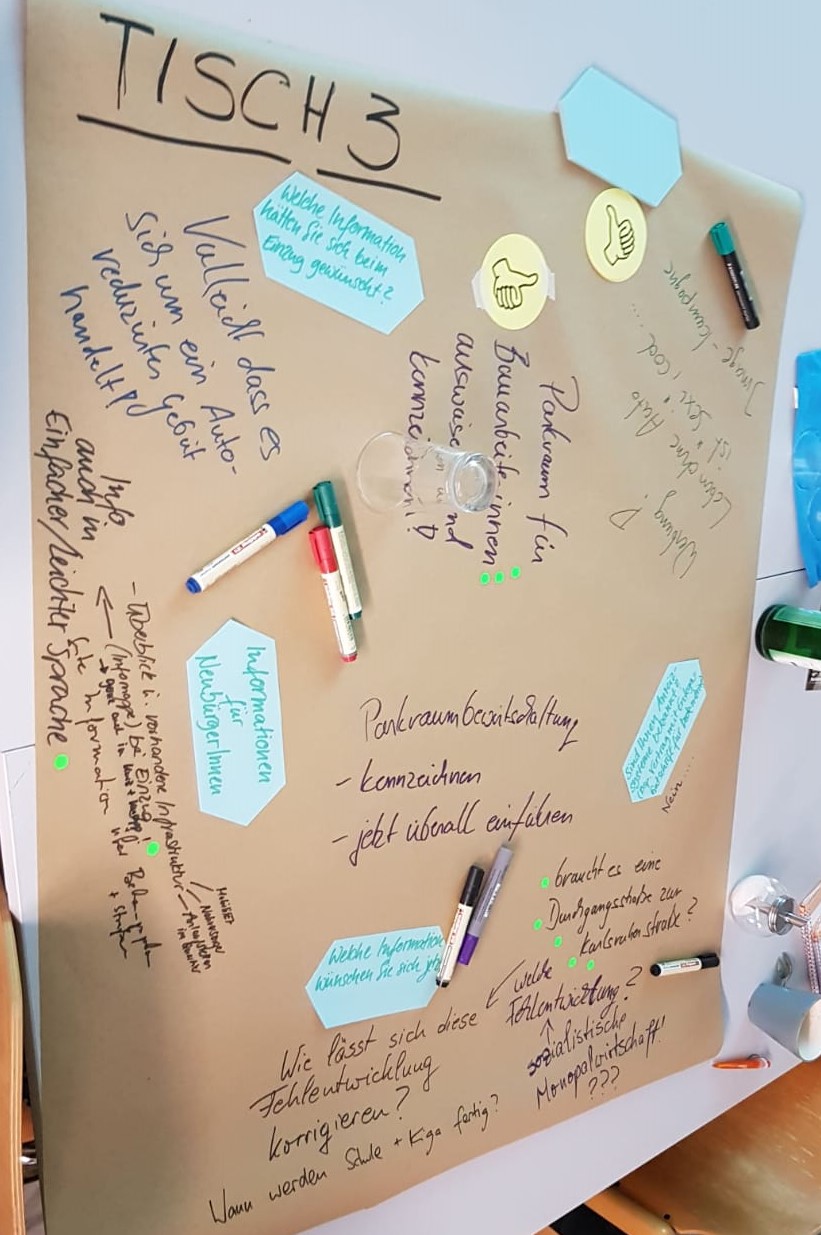 TISCH 3
Welche Information
hätten Sie sich beim
Einzug gewünscht?
Vielleicht dass es
sich um ein Auto-
reduziertes Gebiet
handelt!
Parkraum für
Bauarbeiter:innen
ausweisen und
kennzeichnen!
Werbung!
Leben ohne Auto
ist sexi, cool ...
Image-Kampagne
Info
auch in
Einfacher/Leichter Sprache
Informationen
für
NeubürgerInnen
- Überblick ü. vorhandene Infrastruktur
(Infomappe) bei Einzug!
Information über
Parkraumbewirtschaftung
- kennzeichnen
- jetzt überall einführen
Nein....
Welche Information
wünschen Sie sich jetzt
braucht es eine
Durchgangsstraße zur
Karlsruher straße?
welche
Fehlentwicklung?
sozialistische
Monopolwirtschaft!
???
Wie lässt sich diese
Fehlentwicklung
korrigieren?
Wann werden Schule + Kiga fertig?